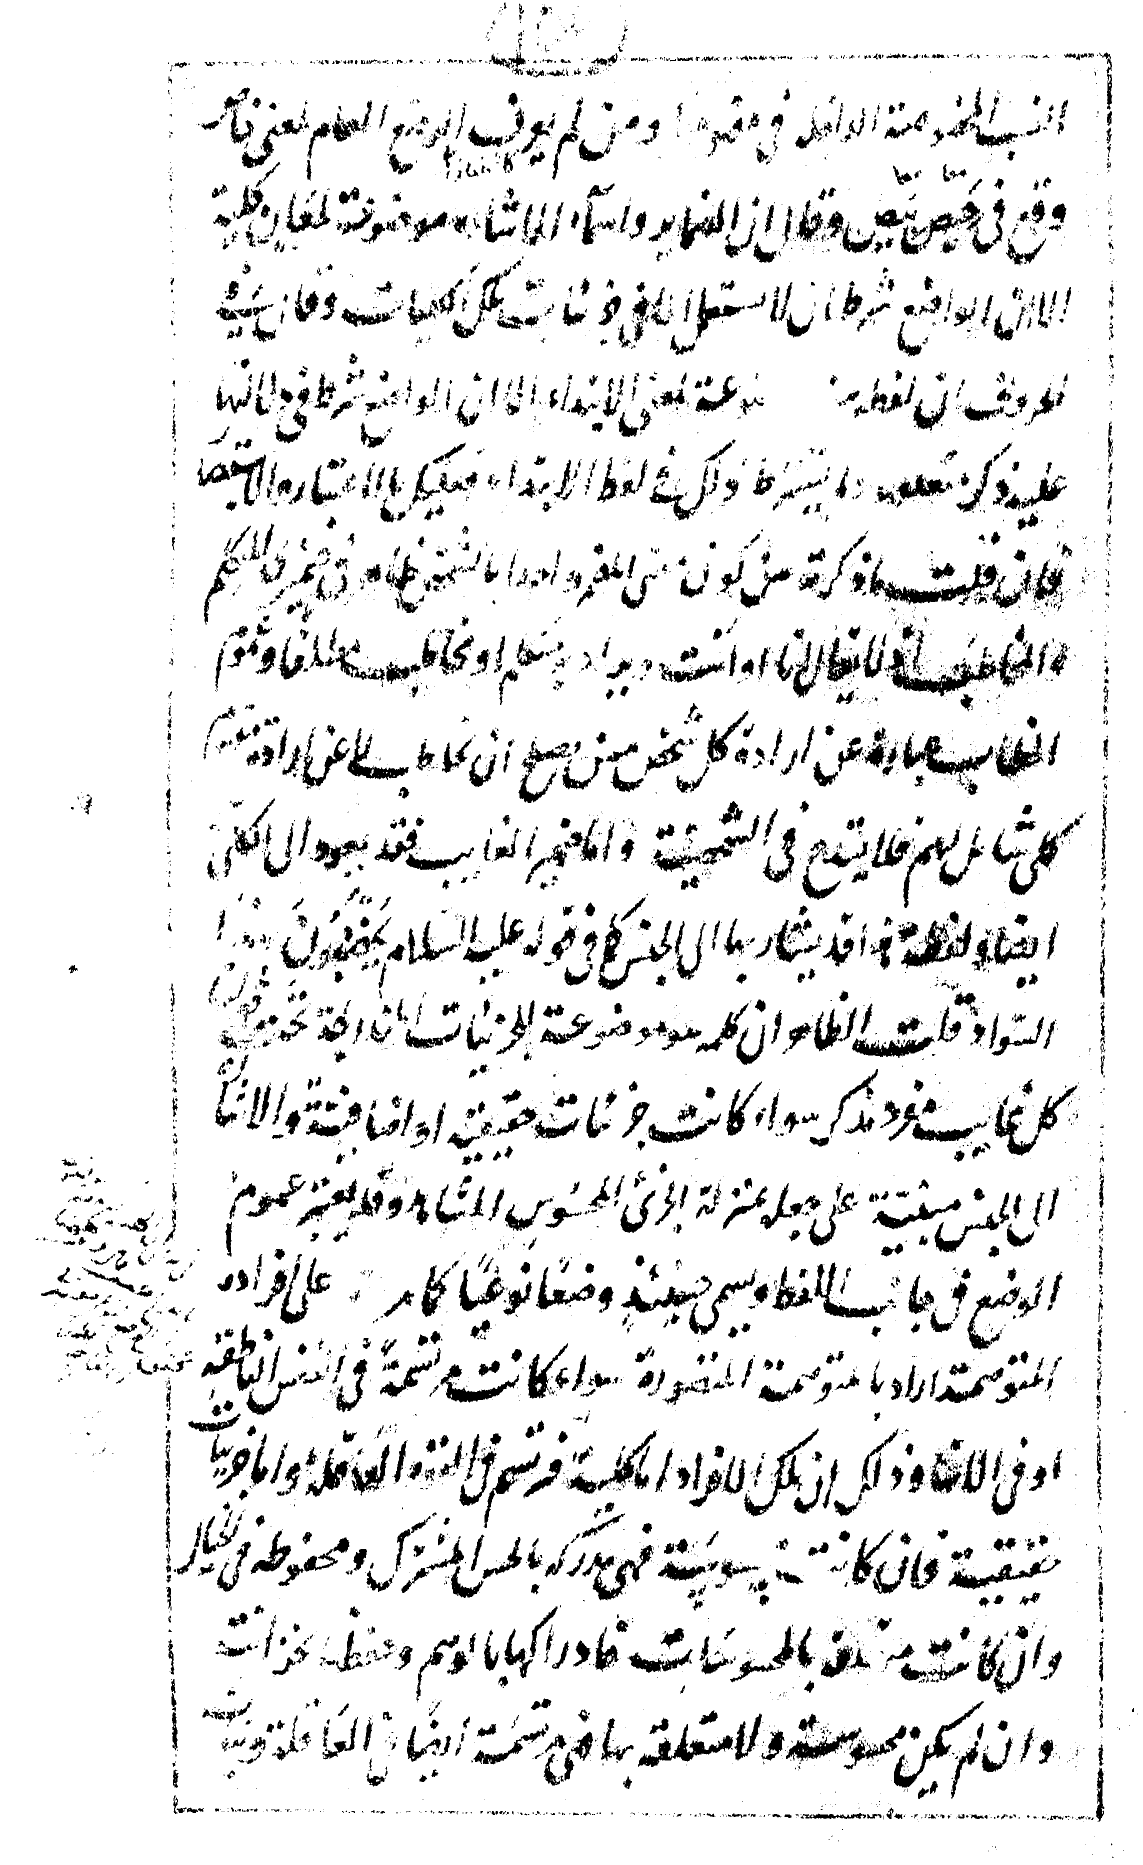 النسب المخصوصة الداخلة في مفهومها ومن لم يعرف الوضع العام لمعنى خاص
وقع في حيص بيص وقال ان الضماير واسماء الاشاره موضوعة لمعان كلية
الا ان الواضع شرط ان لا يستعمل الا في جزئيات تلك الكليات وقال في
الحروف ان لفظة من موضوعة لمعنى الابتداء الا ان الواضع شرط في دلالتها
عليه ذكر متعلقه ولم يشترط ذلك في لفظ الابتداء فعليك بالاعتبار والاستبصار
فان قلت ما ذكرته من كون معنى المفرد واحدا بالشخص ظاهر في ضميري المتكلم
والمخاطب اذ لا يقال انا او انت ويراد به متكلم او مخاطب مطلقا وعموم
الخطاب عبارة عن ارادة كل شخص ممن يصلح ان يخاطب لا عن ارادة مفهوم
كلى شامل لهم فلا يقدح في الشخصية واما ضمير الغايب فقد يعود الى الكلى
ايضا ولفظة هذا قد يشار بها الى الجنس كما في قوله عليه السلام يخضبون بهذا
السواد قلت الظاهر ان كلمه هو موضوعة للجزئيات المندرجة تحت مفهوم
كل غايب مفرد مذكر سواء كانت جزئيات حقيقية او اضافية والاشارة
الى الجنس مبنية على جعله بمنزلة الجزئى المحسوس المشاهد وقد يعتبر عموم
الوضع في جانب اللفظ ويسمى حينئذ وضعا نوعيا كما مر على افراده
المتوهمة اراد بالمتوهمة المتصورة سواء كانت مرتسمة في النفس الناطقة
او في الالات وذلك ان تلك الافراد اما كلية فترتسم في القوة العاقلة واما جزئيات
حقيقية فان كانت محسوسة فهي مدركه بالحس المشترك ومحفوظه في الخيال
وان كانت متعلقه بالمحسوسات فادراكها بالوهم وحفظها بخزانته
وان لم يكن محسوسة ولا متعلقه بها فهي مرتسمة ايضا في العاقلة